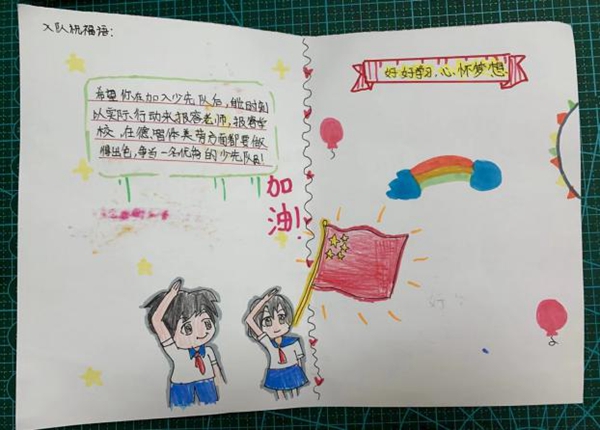 入队祝福语：
希望你在加入少先队后，能时刻
以实际行动来报答老师，报答学
校，在德智体美劳方面都要做
得出色，争当一名优秀的少先队员！
加
油！
好好学习，心怀梦想